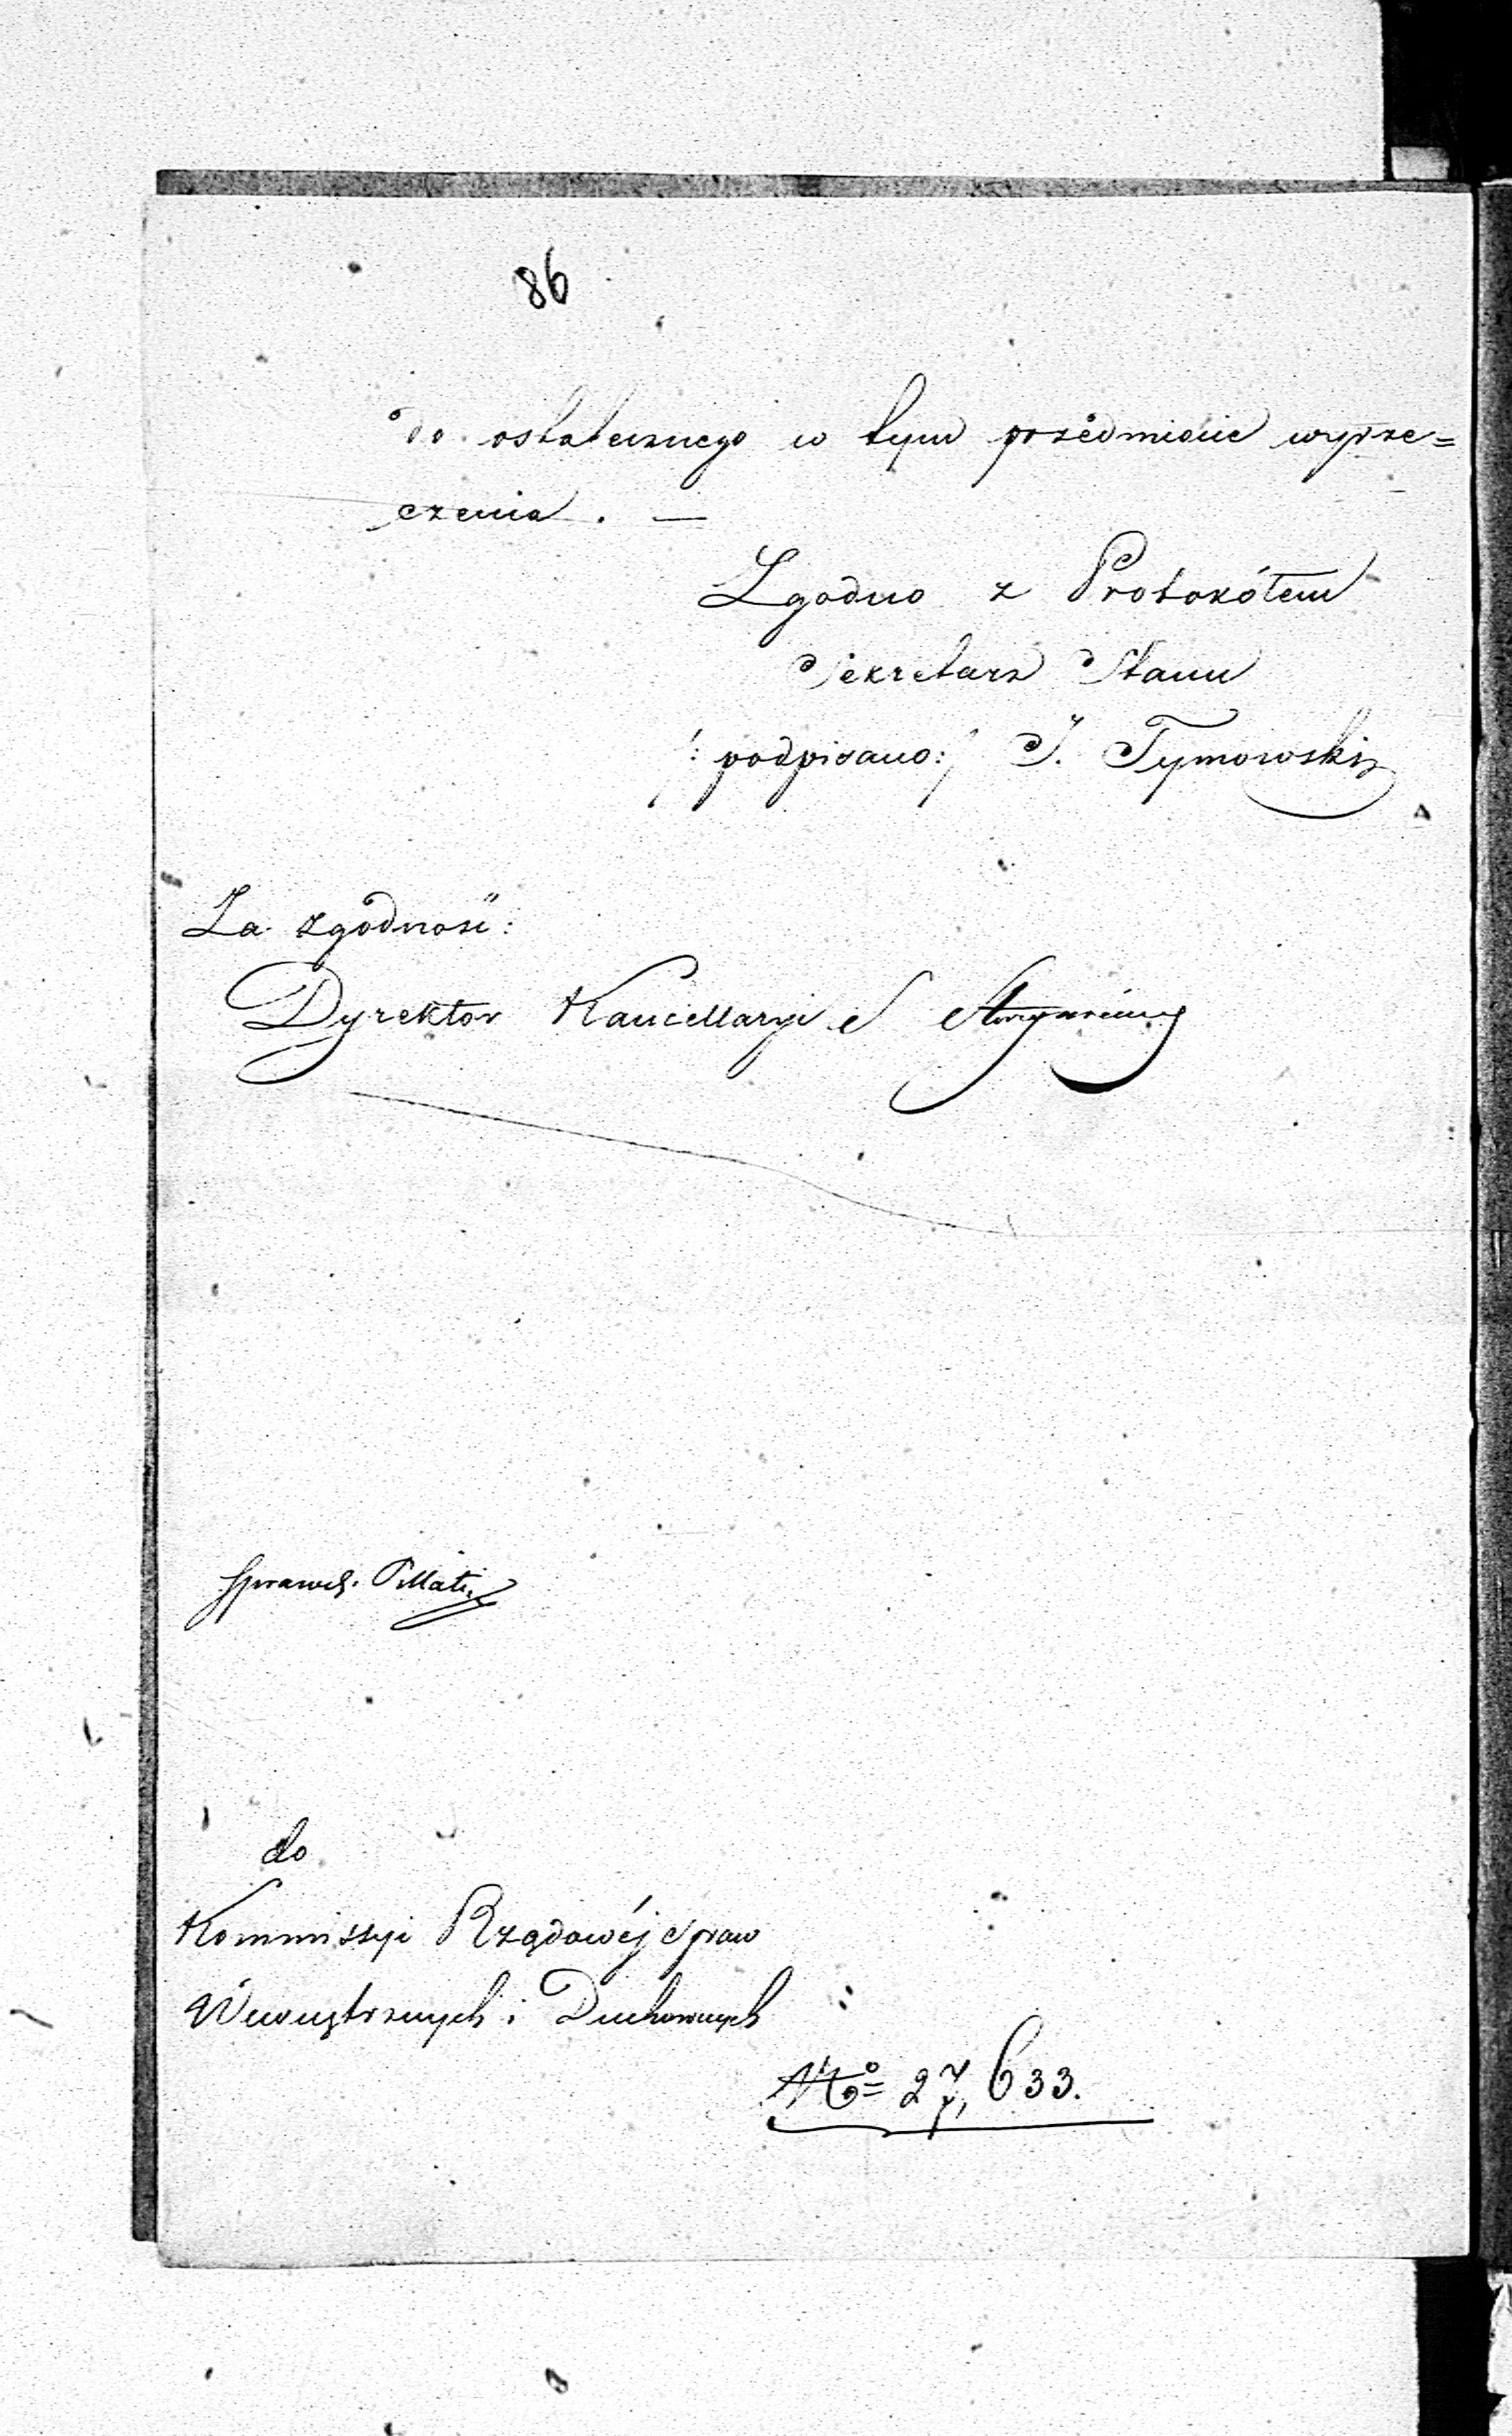 86
do ostatecznego w tym przedmiocie wyrze=
czenia. —
Zgodno z Protokółem
Sekretarz Stanu
/: podpisano:/ J. Tymowski
Za zgodność:
Dyrektor Kancellaryi
Sprawdz.
do
Kommissyi Rządowéj Spraw
Wewnętrznych i Duchownych
No 27,633.